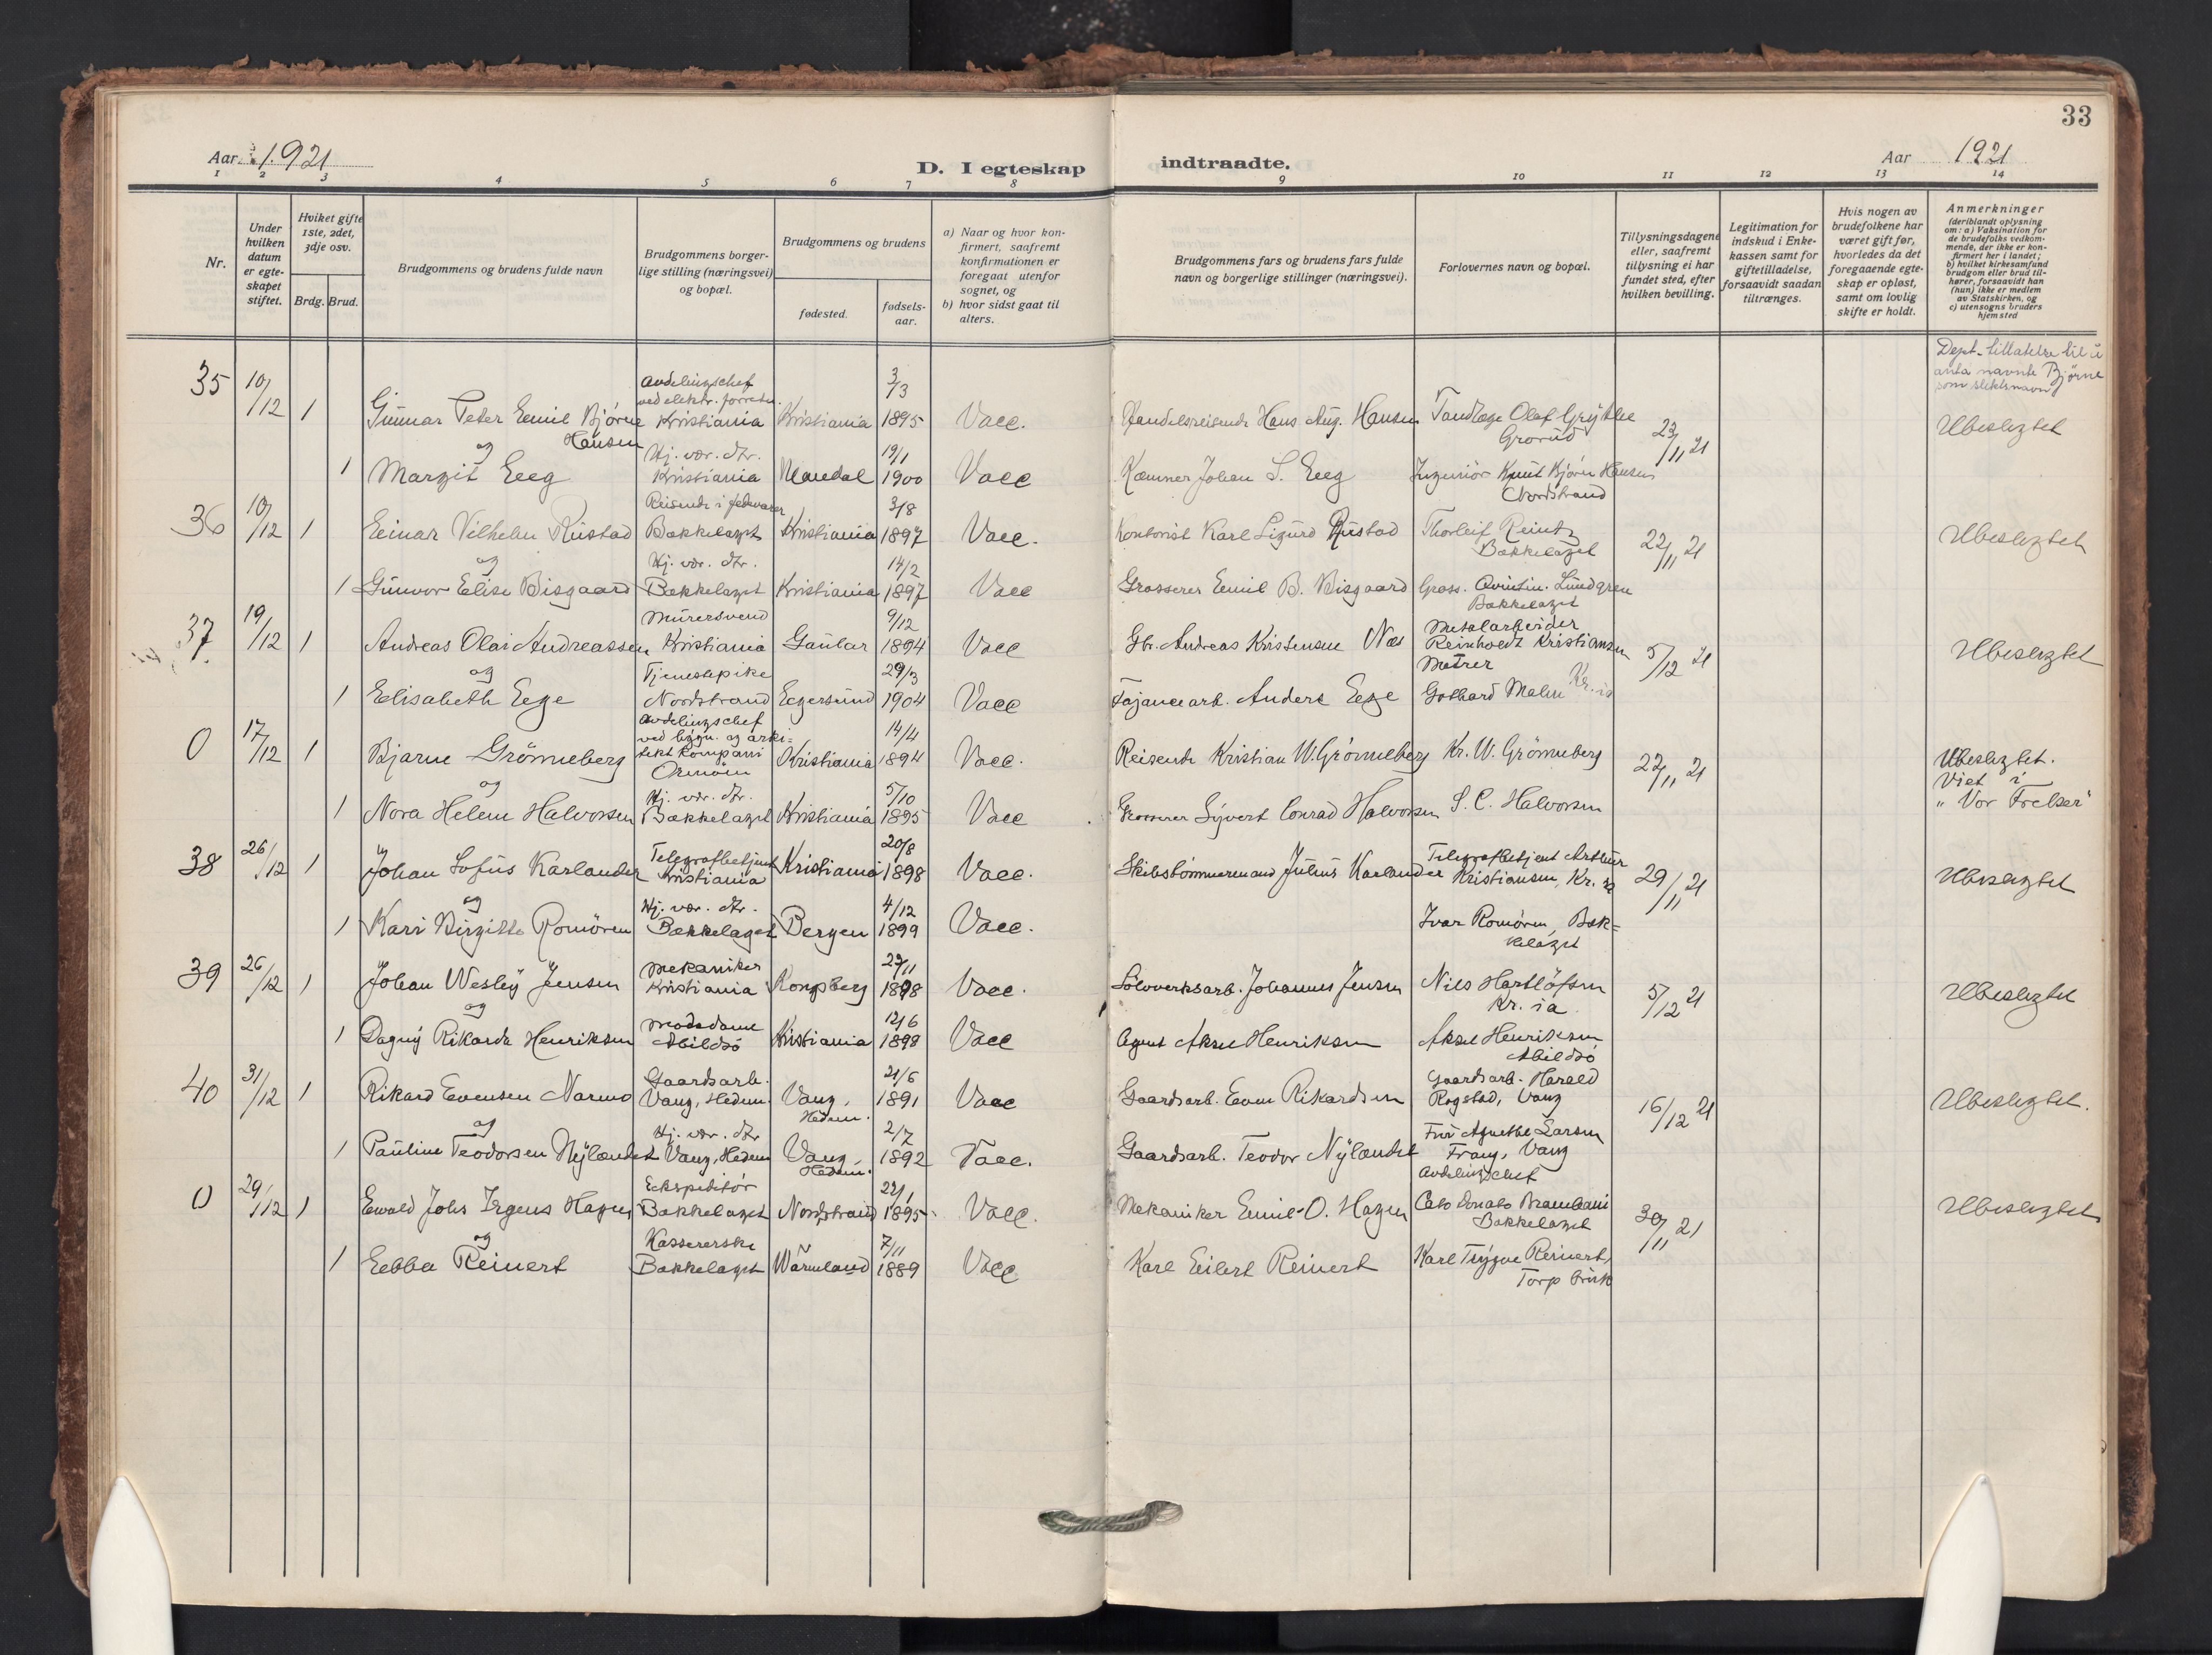 33
Aar 1921
D. I egteskap
indtraadte.
Aar 1921
1 2 3 4 5 6 7 8 9 10 11 12 13 14
Nr.
Under
hvilken
datum
er egte-
skapet
stiftet.
Hviket gifte
1ste, 2det,
3dje osv.
Brdg. Brud.
Brudgommens og brudens fulde navn
Brudgommens borger-
lige stilling (næringsvei)
og bopæl.
Brudgommens og brudens
fødested.
fødsels-
aar.
a) Naar og hvor kon-
firmert, saafremt
konfirmationen er
foregaat utenfor
sognet, og
b) hvor sidst gaat til
alters.
Brudgommens fars og brudens fars fulde
navn og borgerlige stillinger (næringsvei).
Forlovernes navn og bopæl.
Tillysningsdagene
eller, saafremt
tillysning ei har
fundet sted, efter
hvilken bevilling.
Legitimation for
indskud i Enke-
kassen samt for
giftetilladelse,
forsaavidt saadan
tiltrænges.
Hvis nogen av
brudefolkene har
været gift før,
hvorledes da det
foregaaende egte-
skap er opløst,
samt om lovlig
skifte er holdt.
Anmerkninger
(deriblandt oplysning
om: a) Vaksination for
de brudefolks vedkom-
mende, der ikke er kon-
firmert her i landet;
b) hvilket kirkesamfund
brudgom eller brud til-
hører, forsaavidt han
(hun) ikke er medlem
av Statskirken, og
c) utensogns bruders
hjemsted
Dept. tillatelse til å
anta navnet Bjørne
som slektsnavn
35 10/12 1 Gunnar Peter Emil Bjørne Hansen
Avdelingschef
ved elektr. forretn.
Kristiania Kristiania 3/3 1895 Vacc. Handelsreisende Hans Aug. Hansen Tandlæge Olaf Grytbe
Grorud 23/11 21 Ubeslegtet
og
1 Margit Eeg Hj. vær. dtr.
Kristiania Mandal 19/1 1900 Vacc Kæmner Johan S. Eeg Ingeniör Knut Bjørn Hansen
Nordstrand
36 10/12 1 Einar Vilhelm Rustad Reisende i fedevarer
Bækkelaget Kristiania 3/8 1897 Vacc. Kontorist Karl Sigurd Rustad Thorleif Reintz
Bækkelaget 22/11 21 Ubeslegtet
og
1 Gunvor Elise Bisgaard Hj. vær. dtr.
Bækkelaget Kristiania 14/2 1897 Vacc Grosserer Emil B. Bisgaard Gross. Qvintin Lundgren
Bækkelaget
37 19/12 1 Andreas Olai Andreassen Murersvend
Kristiania Gaular 9/12 1894 Vacc Gbr. Andreas Kristensen Nes Metalarbeider
Reinholdt Kristiansen 5/12 21 Ubeslegtet
og
1 Elisabeth Ege Tjenestepike
Nordstrand Egersund 29/3 1904 Vacc Fajancearb. Anders Ege Matros
Gothard Malm Kr.ia
0 17/12 1 Bjarne Grönneberg Avdelingschef
ved bygn. og arki=
tekt kompani
Ormöen Kristiania 14/4 1894 Vacc. Reisende Kristian W. Grönneberg Kr. W. Grönneberg 22/11 21 Ubeslegtet.
Viet i
"Vor Frelser"
og
1 Nora Helene Halvorsen Hj. vær. dtr.
Bækkelaget Kristiania 5/10 1895 Vacc Grosserer Syvert Conrad Halvorsen S. C. Halvorsen
38 26/12 1 Johan Sofus Karlander Telegrafbetjent
Kristiania Kristiania 20/8 1898 Vacc. Skibstömmermand Julius Karlander Telegrafbetjent Arthur
Kristiansen, Kr.ia 29/11 21 Ubeslegtet
og
1 Kari Birgitte Romören Hj. vær. dtr.
Bækkelaget Bergen 4/12 1899 Vacc. Ivar Romören, Bæk=
kelaget
39 26/12 1 Johan Wesley Jensen Mekaniker
Kristiania Kongsberg 27/11 1898 Vacc. Sölvverksarb. Johannes Jensen Nils Hartlöfsen
Kr.ia 5/12 21 Ubeslegtet
og
1 Dagny Rikarda Henriksen Motedame
Abildsö Kristiania 12/6 1898 Vacc Agent Aksel Henriksen Aksel Henriksen
Abildsö
40 31/12 1 Rikard Evensen Narmo Gaardsarb.
Vang, Hedm. Vang, Hedm. 21/6 1891 Vacc Gaardsarb. Even Rikardsen Gaardsarb. Harald
Rogstad, Vang 16/12 21 Ubeslegtet.
og
1 Pauline Teodorsen Nylændet Hj. vær. dtr
Vang, Hedm Vang, Hedm. 2/7 1892 Vacc. Gaardsarb. Teodor Nylændet Fru Agnethe Larsen
Frang, Vang
0 29/12 1 Ewald Johs Irgens Hagen Ekspeditör
Bækkelaget Nordstrand 22/1 1895 Vacc. Mekaniker Emil O. Hagen Avdelingschef
Cato Donato Brambani
Bækkelaget 30/11 21 Ubeslegtet
og
1 Ebba Reinert Kassererske
Bækkelaget Wärmland 7/11 1889 Vacc Karl Eilert Reinert Karl Trygve Reinert,
Torp bruk